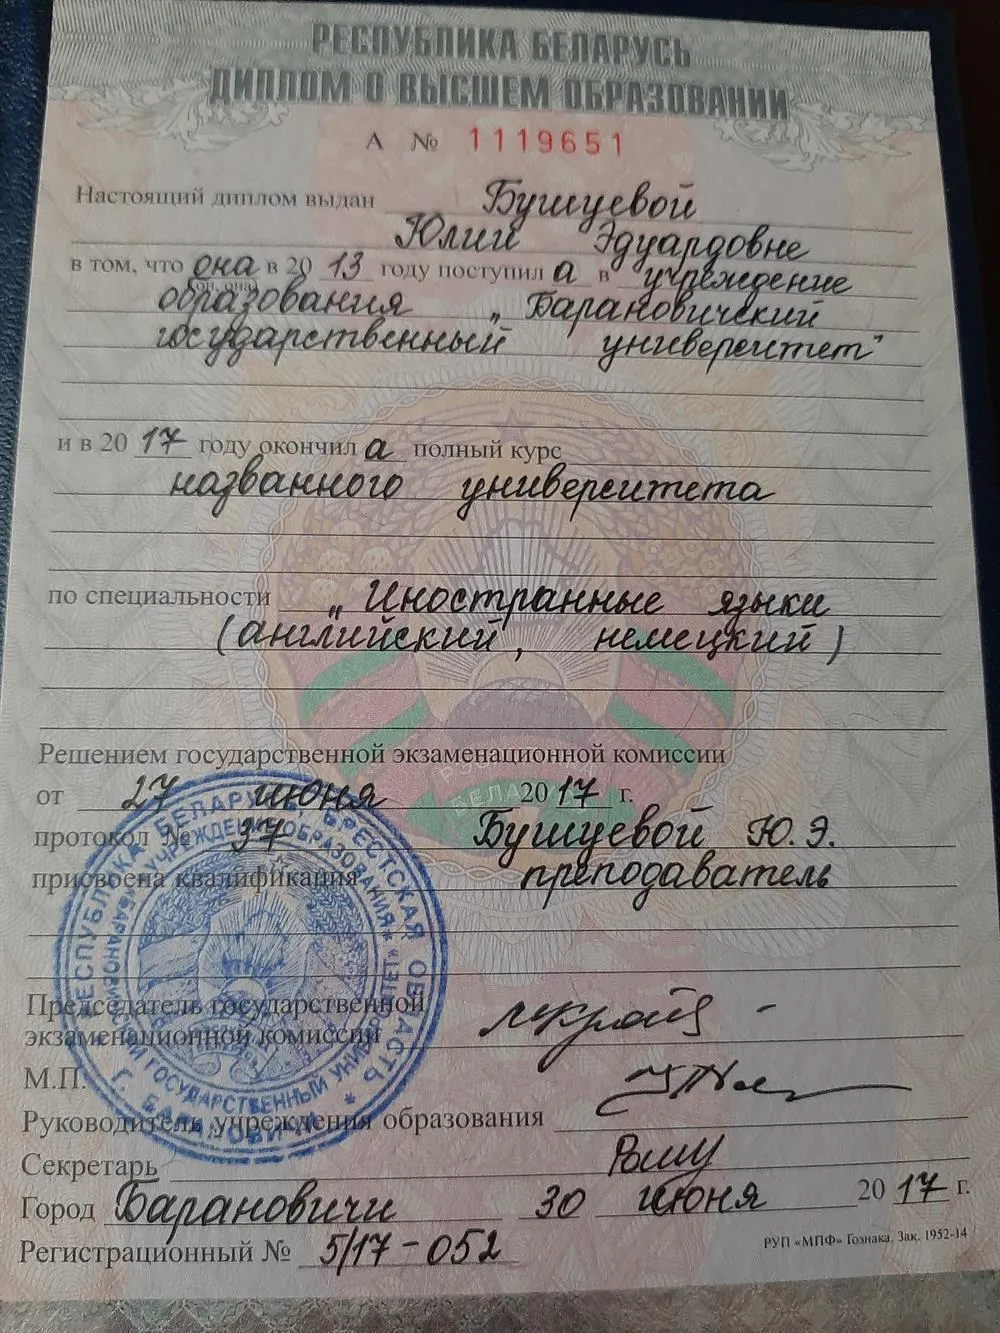 РЕСПУБЛИКА БЕЛАРУСЬ
ДИПЛОМ О ВЫСШЕМ ОБРАЗОВАНИИ
А № 1119651
Настоящий диплом выдан Бушуевой
Юлии Эдуардовне
в том, что она в 2013 году поступила в учреждение
(он, она)
образования „Барановичский
государственный университет"
и в 2017 году окончила полный курс
названного университета
по специальности „Иностранные языки
(английский, немецкий)
Решением государственной экзаменационной комиссии
от 27 июня 2017 г.
протокол № 37 Бушуевой Ю.Э.
присвоена квалификация преподаватель
Председатель государственной
экзаменационной комиссии
М.П.
Руководитель учреждения образования
Секретарь
Город Барановичи 30 июня 2017 г.
Регистрационный № 5/17-052
РУП «МПФ» Гознака. Зак. 1952-14
РЕСПУБЛИКА БЕЛАРУСЬ * БРЕСТСКАЯ ОБЛАСТЬ * Г. БАРАНОВИЧИ *
УЧРЕЖДЕНИЕ ОБРАЗОВАНИЯ * «БАРАНОВИЧСКИЙ ГОСУДАРСТВЕННЫЙ УНИВЕРСИТЕТ» *
БЕЛАРУСЬ